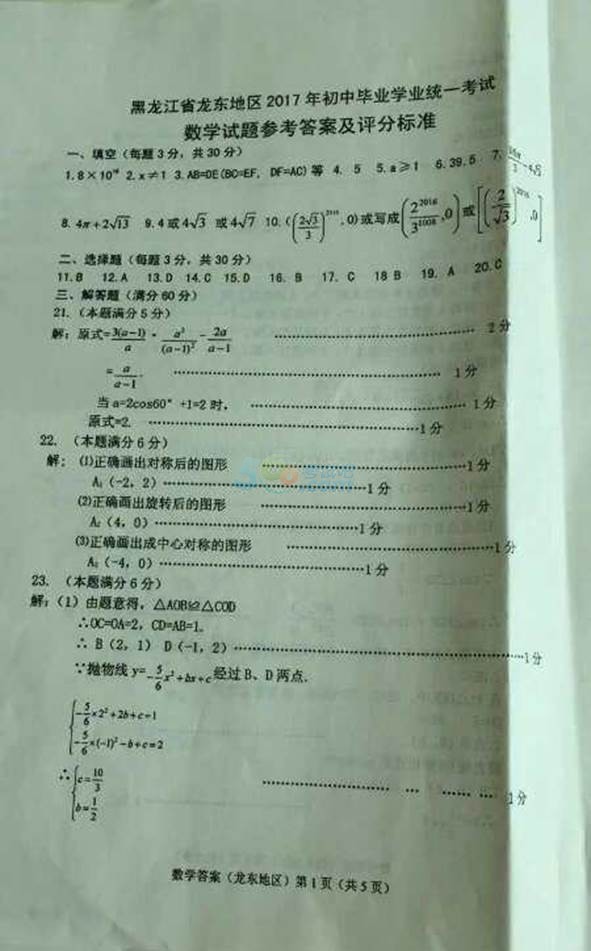 黑龙江省龙东地区2017年初中毕业学业统一考试
数学试题参考答案及评分标准
一、填空（每题3分，共30分）
1.8×10 2.x≠1 3.AB=DE(BC=EF, DF=AC)等 4. 5 5.a≥1 6.39.5 7.
8. 4π+2√13 9.4或4√3 或4√7 10.((2√3/3)^2016,0)或写成(2^2016/3^1008,0)或[(2/√3)^2016,0]
二、选择题（每题3分，共30分）
11.B 12.A 13.D 14.C 15.D 16. B 17. C 18 B 19. A 20.C
三、解答题（满分60分）
21.（本题满分5分）
解：原式=3(a-1)/a · a²/(a-1)² - 2a/(a-1) ………… 2分
=a/(a-1). ………… 1分
当a=2cos60°+1=2时， ………… 1分
原式=2. …………1分
22. （本题满分6分）
解：⑴正确画出对称后的图形 …………1分
A₁(-2, 2)…………1分
⑵正确画出旋转后的图形 …………1分
A₂(4, 0)…………1分
⑶正确画出成中心对称的图形 …………1分
A₃(-4, 0)…………1分
23. （本题满分6分）
解：(1)由题意得，△AOB≌△COD
∴OC=OA=2, CD=AB=1.
∴ B(2, 1) D(-1, 2)…………1分
∵抛物线y=-5/6x²+bx+c经过B、D两点.
{-5/6×2²+2b+c=1
-5/6×(-1)²-b+c=2
∴{c=10/3
b=1/2 ………… 1分
数学答案（龙东地区）第1页（共5页）